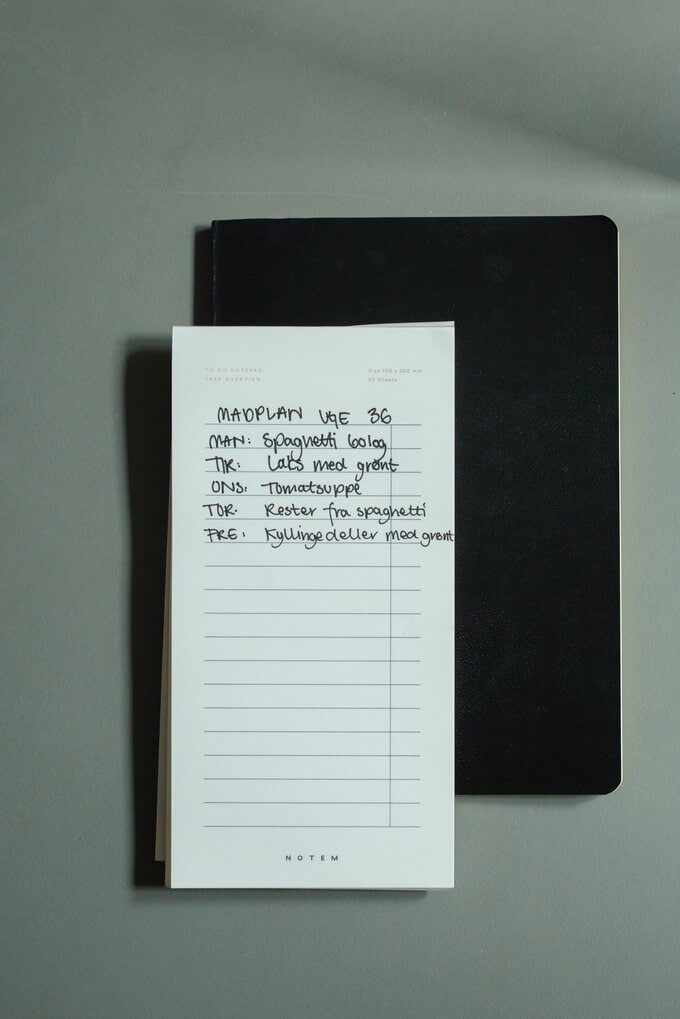 TO DO NOTEPAD
TASK OVERVIEW
Size 100 x 200 mm
60 Sheets
MADPLAN UGE 36
MAN: Spaghetti bolog
TIR: Laks med grønt
ONS: Tomatsuppe
TOR. Rester fra spaghetti
FRE: Kyllingedeller med grønt
NOTEM